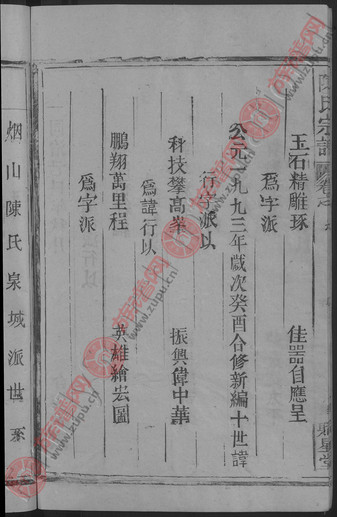 陳氏宗譜 卷之
玉石精雕琢 佳器自應呈
爲字派
公元一九九三年歲次癸酉合修新編十世諱
行字派以
科技攀高峯 振興偉中華
爲諱行以
鵬翔萬里程 英雄繪宏圖
爲字派
烟山陳氏泉城派世系
www.zupu.cn
www.zupu.cn
www.zupu.cn